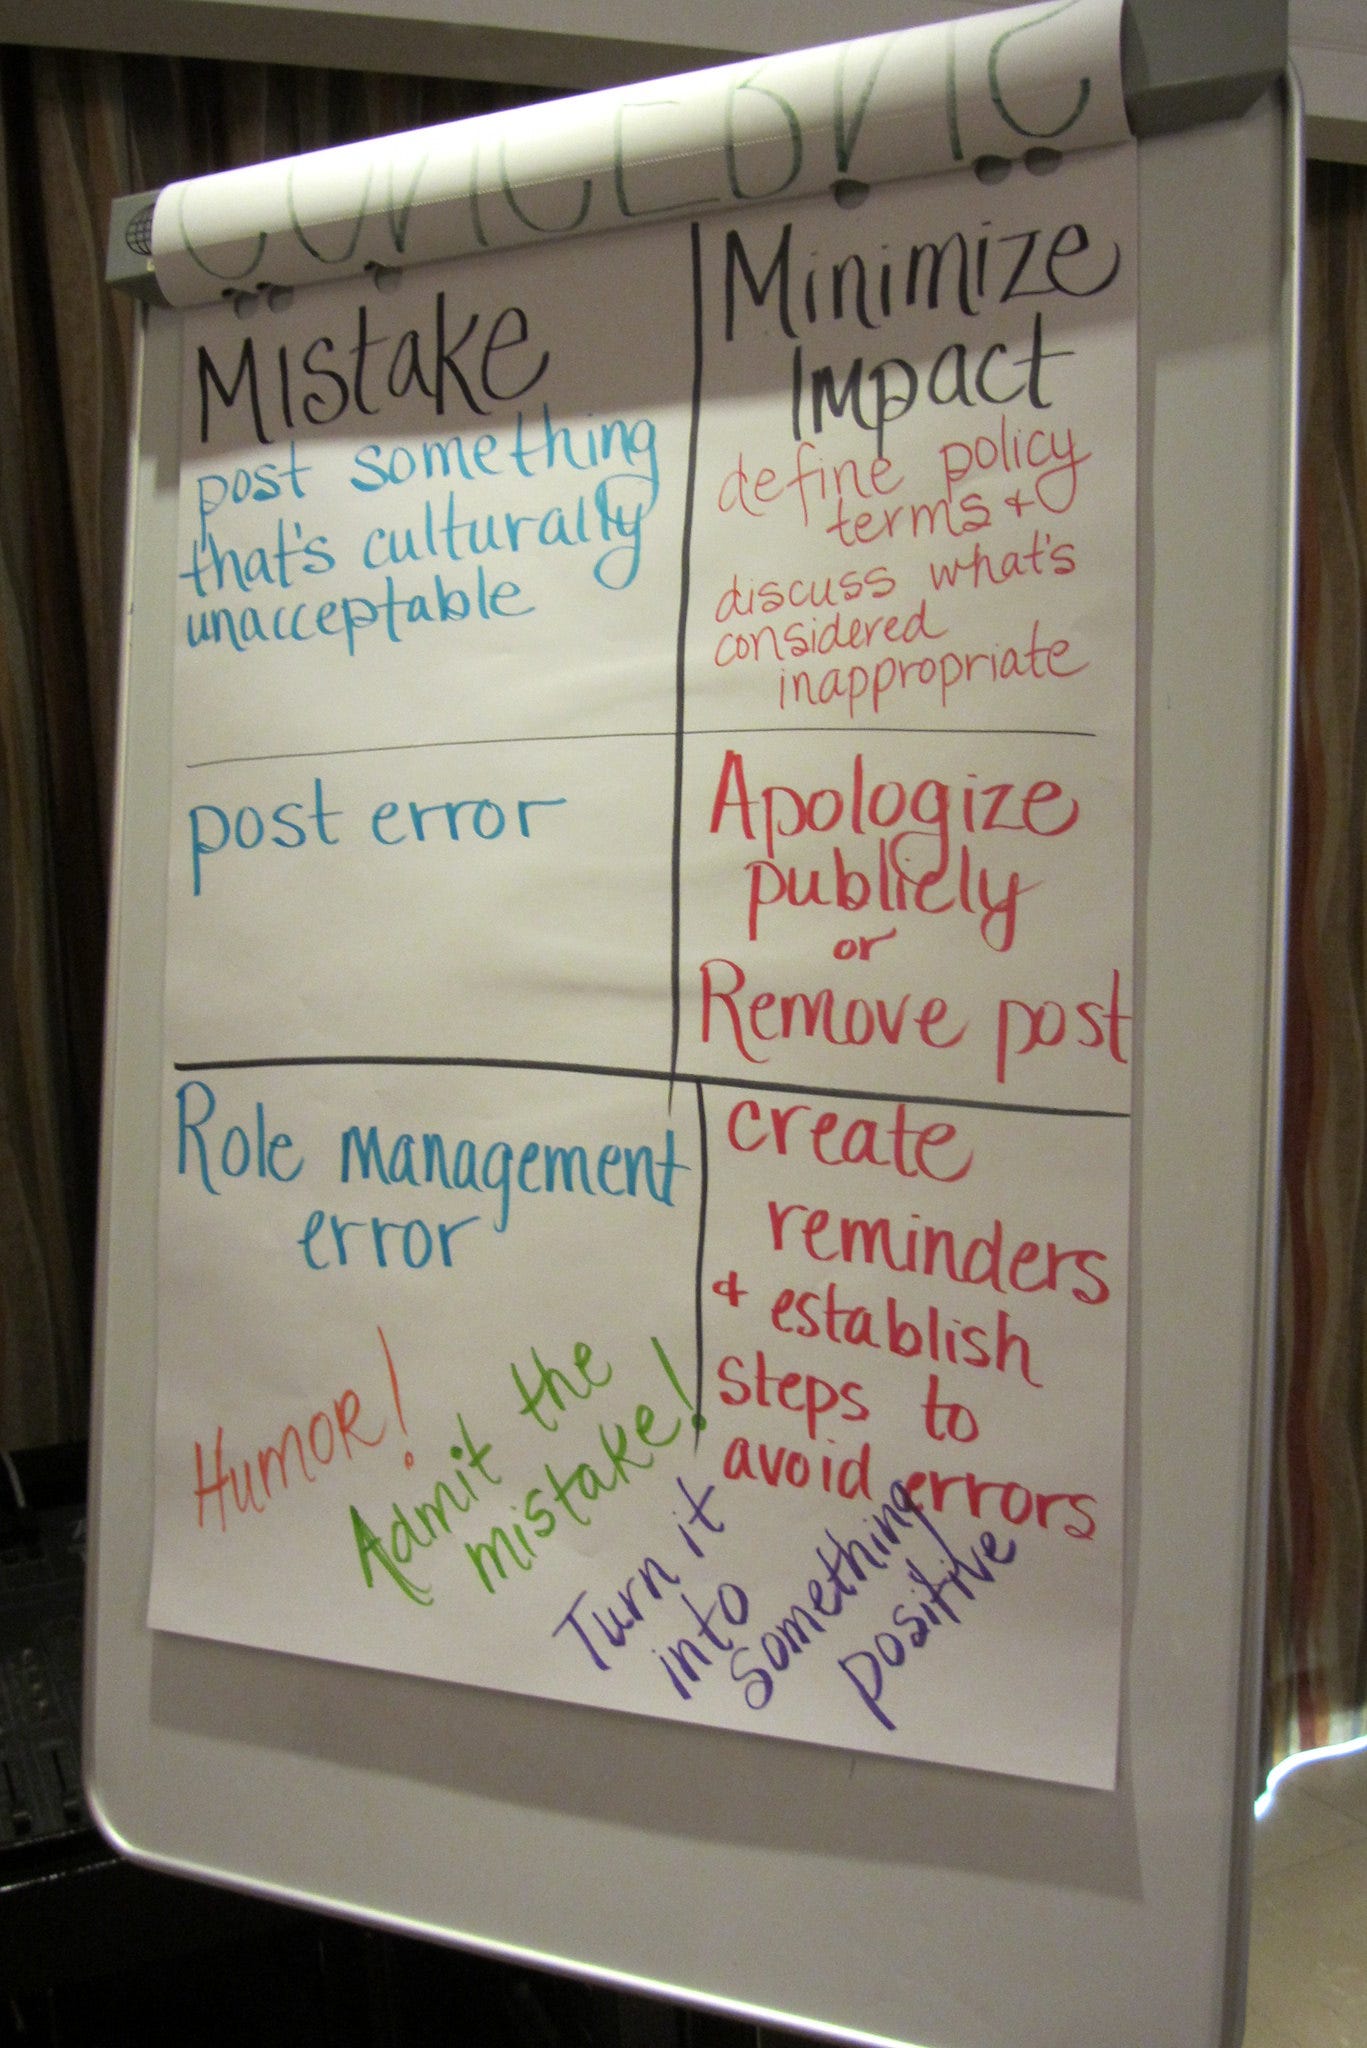 CONCERNS
Mistake
post something
that's culturally
unacceptable
Minimize
Impact
define policy
terms &
discuss what's
considered
inappropriate
post error
Apologize
publicly
or
Remove post
Role management
error
create
reminders
& establish
steps to
avoid errors
Humor!
Admit the
mistake!
Turn it
into
something
positive